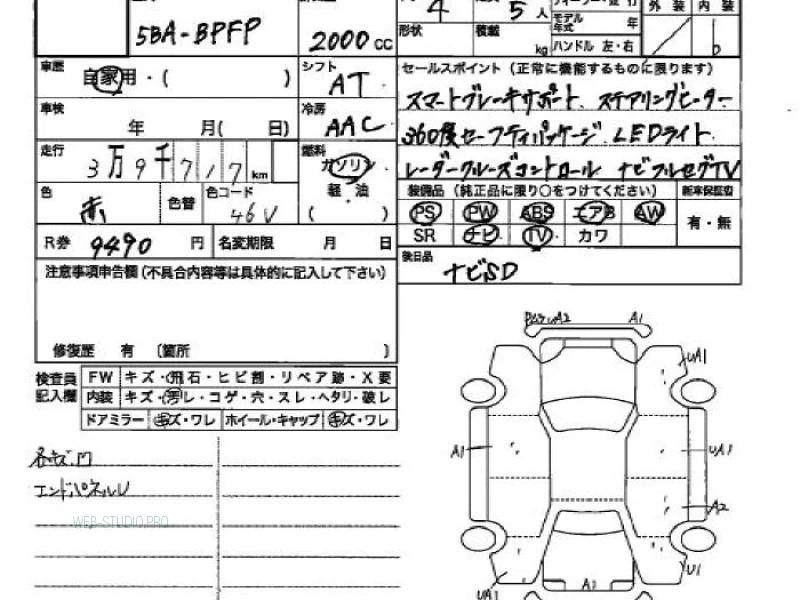 4 5人
5BA-BPFP 2000 CC
形状 積載 kg
モデル年式 年
ハンドル 左・右
外装 内装
車歴 自家用・( )
シフト AT
セールスポイント (正常に機能するものに限ります)
スマートブレーキサポート、ステアリングヒーター
360度セーフティパッケージ、LEDライト
レーダークルーズコントロール ナビフルセグTV
車検 年 月( 日)
冷房 AAC
走行 3万9千717km
燃料 ガソリン 軽・油 ( )
色 赤 色替 色コード 46V
装備品 (純正品に限り○をつけてください) 新車保証書
PS PW ABS エアB AW 有・無
SR ナビ TV カワ
R券 9490円 名変期限 月 日
後日品 ナビSD
注意事項申告欄(不具合内容等は具体的に記入して下さい)
修復歴 有 〔箇所 〕
検査員記入欄 FW キズ・飛石・ヒビ割・リペア跡・X要
内装 キズ・汚レ・コゲ・穴・スレ・ヘタリ・破レ
ドアミラー キズ・ワレ ホイール・キャップ キズ・ワレ
エンドパネルU
WEB-STUDIO.PRO
A2 A1
UA1
A1 UA1
A2
U1
UA1 A1